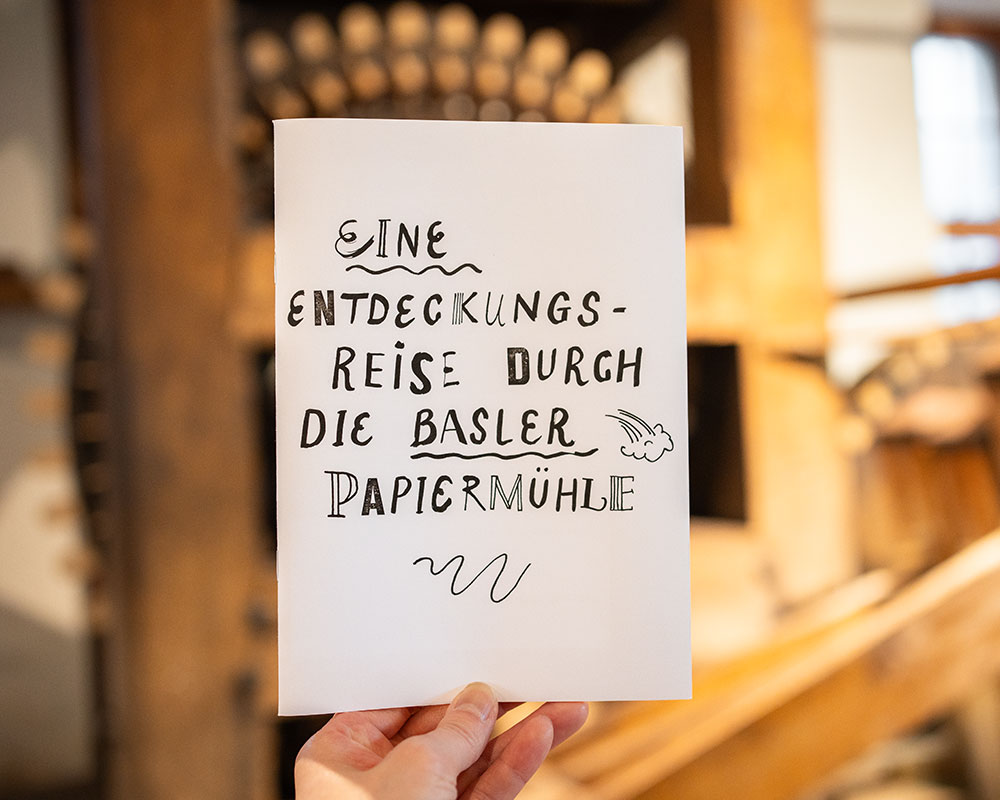 EINE
ENTDECKUNGS-
REISE DURCH
DIE BASLER
PAPIERMÜHLE